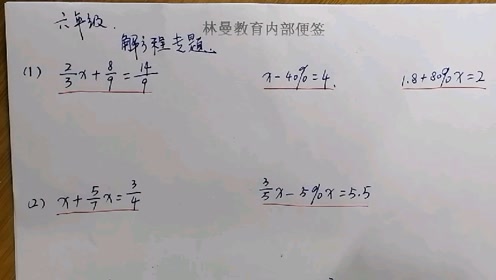 林曼教育内部便签
六年级.
解方程专题.
(1) 2/3x+8/9=14/9 x-40%=4. 1.8+80%x=2
(2) x+5/7x=3/4 3/5x-5%x=5.5